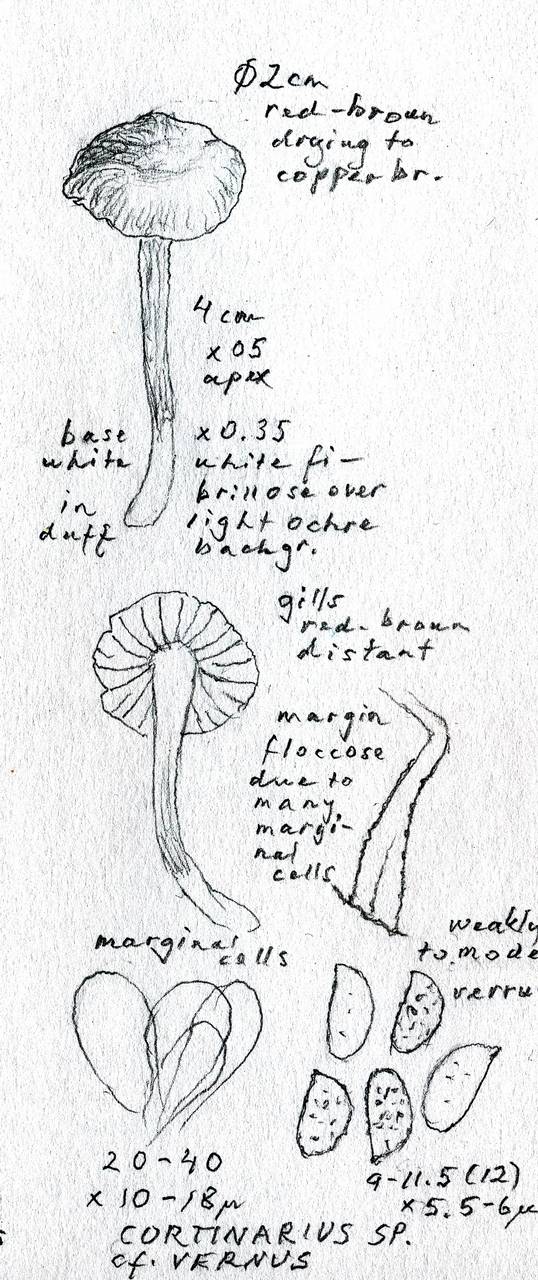 Ø2cm
red-brown
drying to
copper br.
4 cm
x 05
apex
base
white
in
duff
x 0.35
white fi-
brillose over
light ochre
backgr.
gills
red-brown
distant
margin
floccose
due to
many
margi-
nal
cells
marginal
cells
weakly
to mode
verru
20-40
x 10-18µ
9-11.5 (12)
x 5.5-6µ
CORTINARIUS SP.
cf. VERNUS